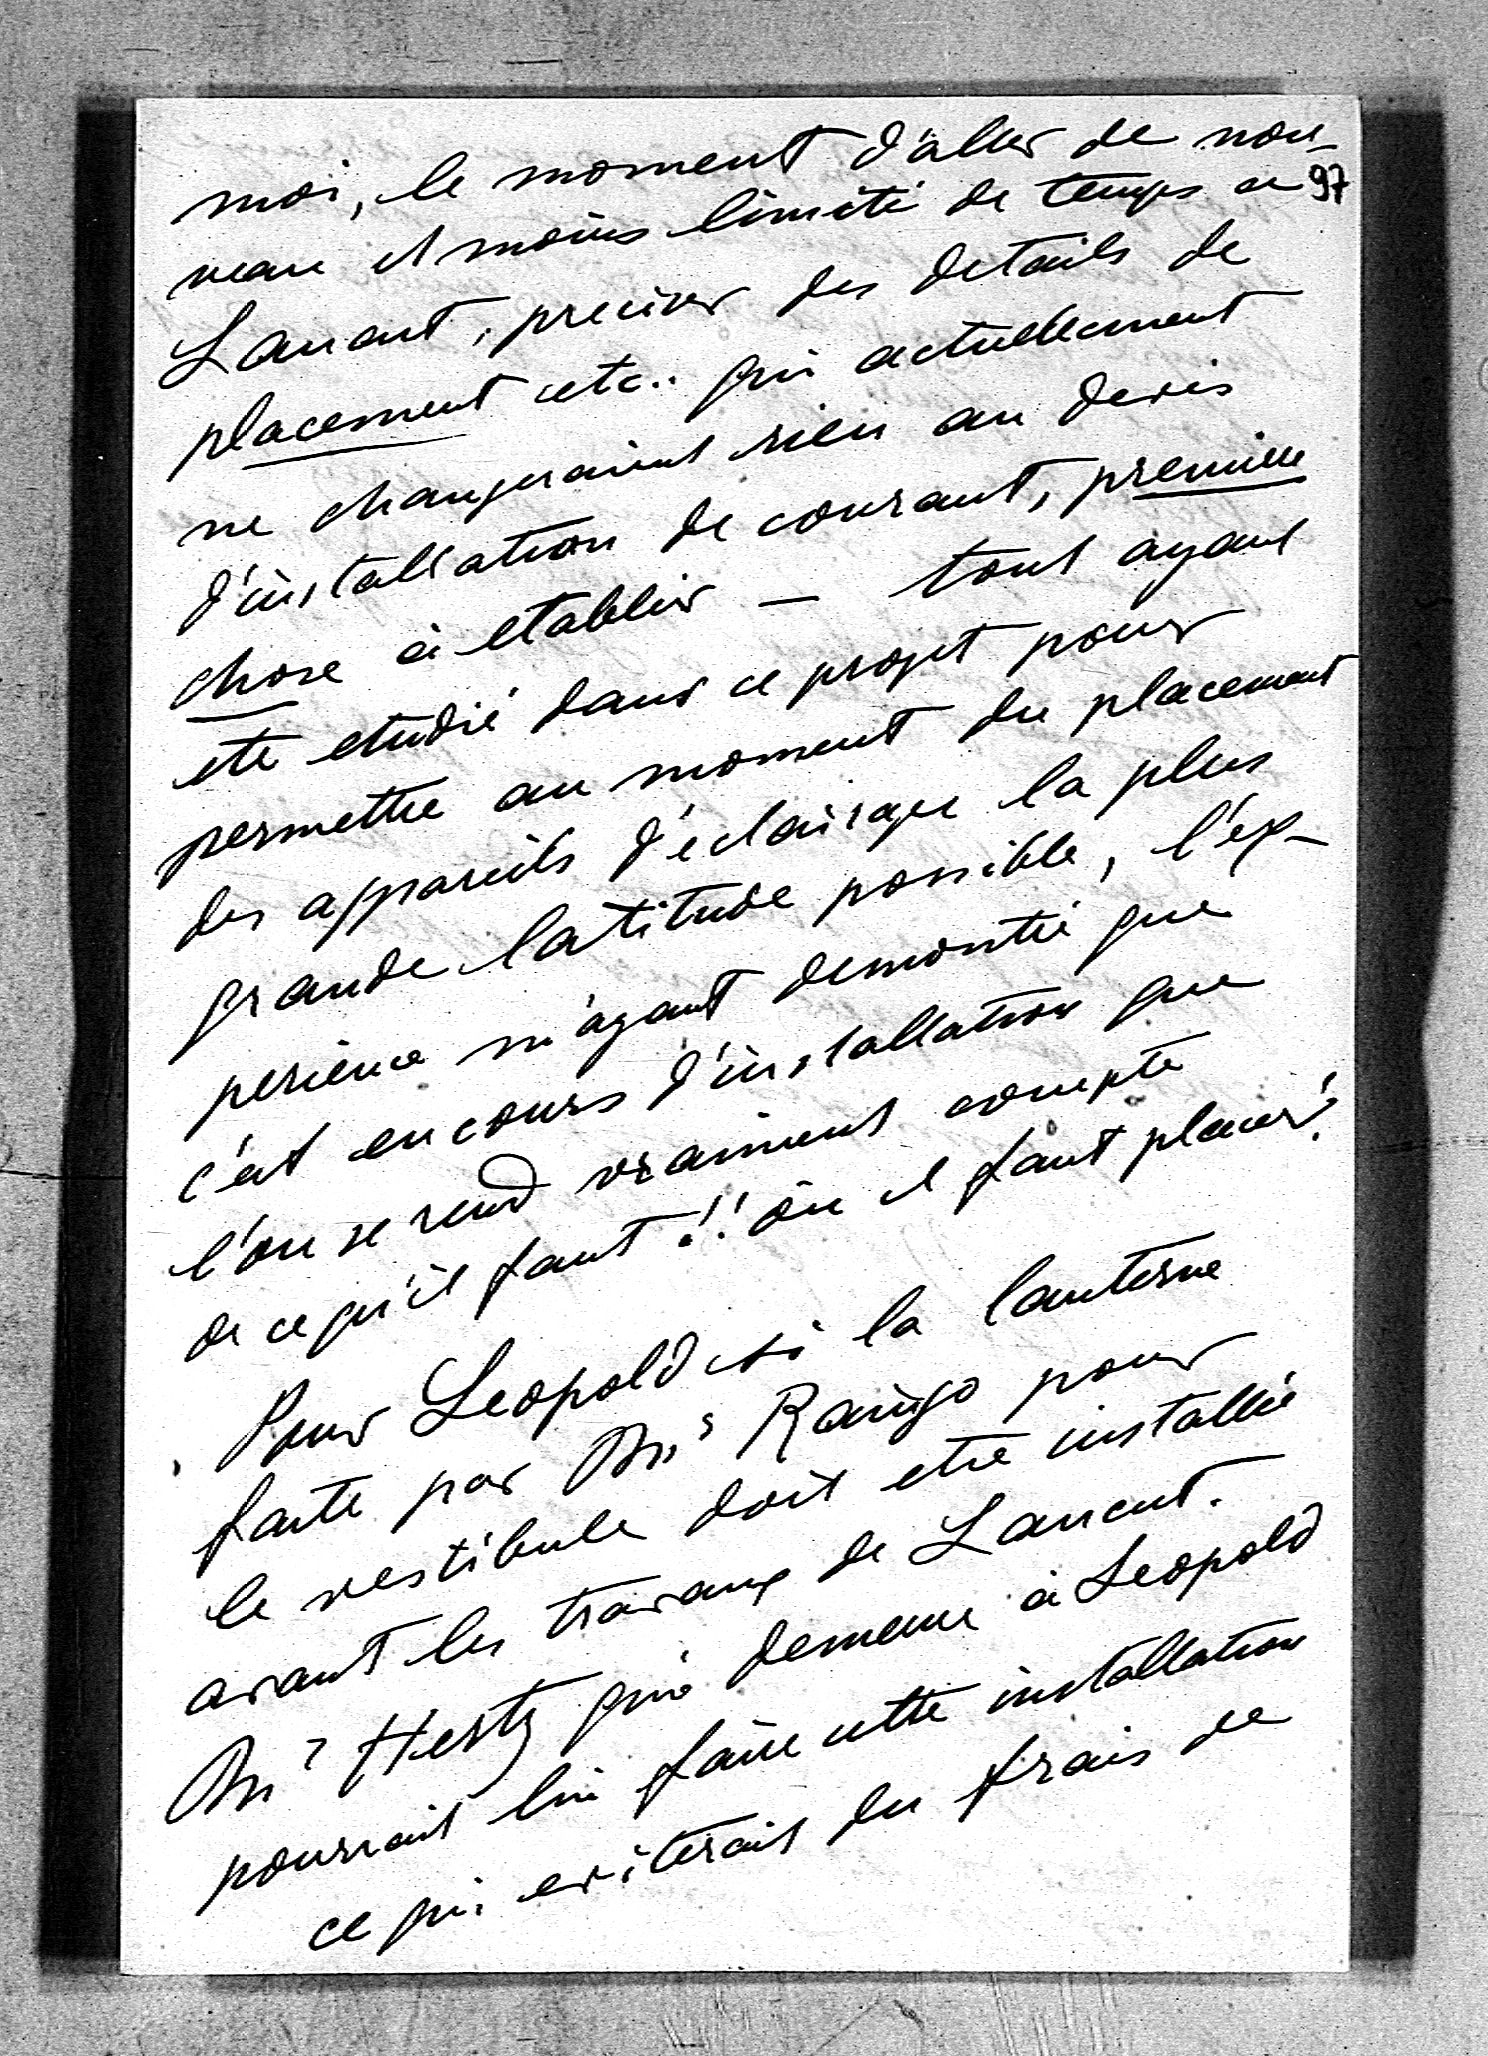 moi, le moment d'aller de nou-
97
veau et moins limité de temps a
Lancut, preciser des details de
placement etc.. qui actuellement
ne changeraient rien au devis
d'installation de courant, premiere
chose à etablir — tout ayant
ete etudié dans ce projet pour
permettre au moment du placement
des appareils d'éclairage la plus
grande latitude possible, l'ex-
perience m'ayant demontré que
c'est en cours d'installation que
l'on se rend vraiment compte
de ce qu'il faut!! où il faut placer!
Pour Leopold si la lanterne
faite par Mrs Raingo pour
le vestibule doit etre installée
avant les travaux de Lancut.
Mr Hertz qui demeure à Leopold
pourrait lui faire cette installation
ce qui eviterait des frais de